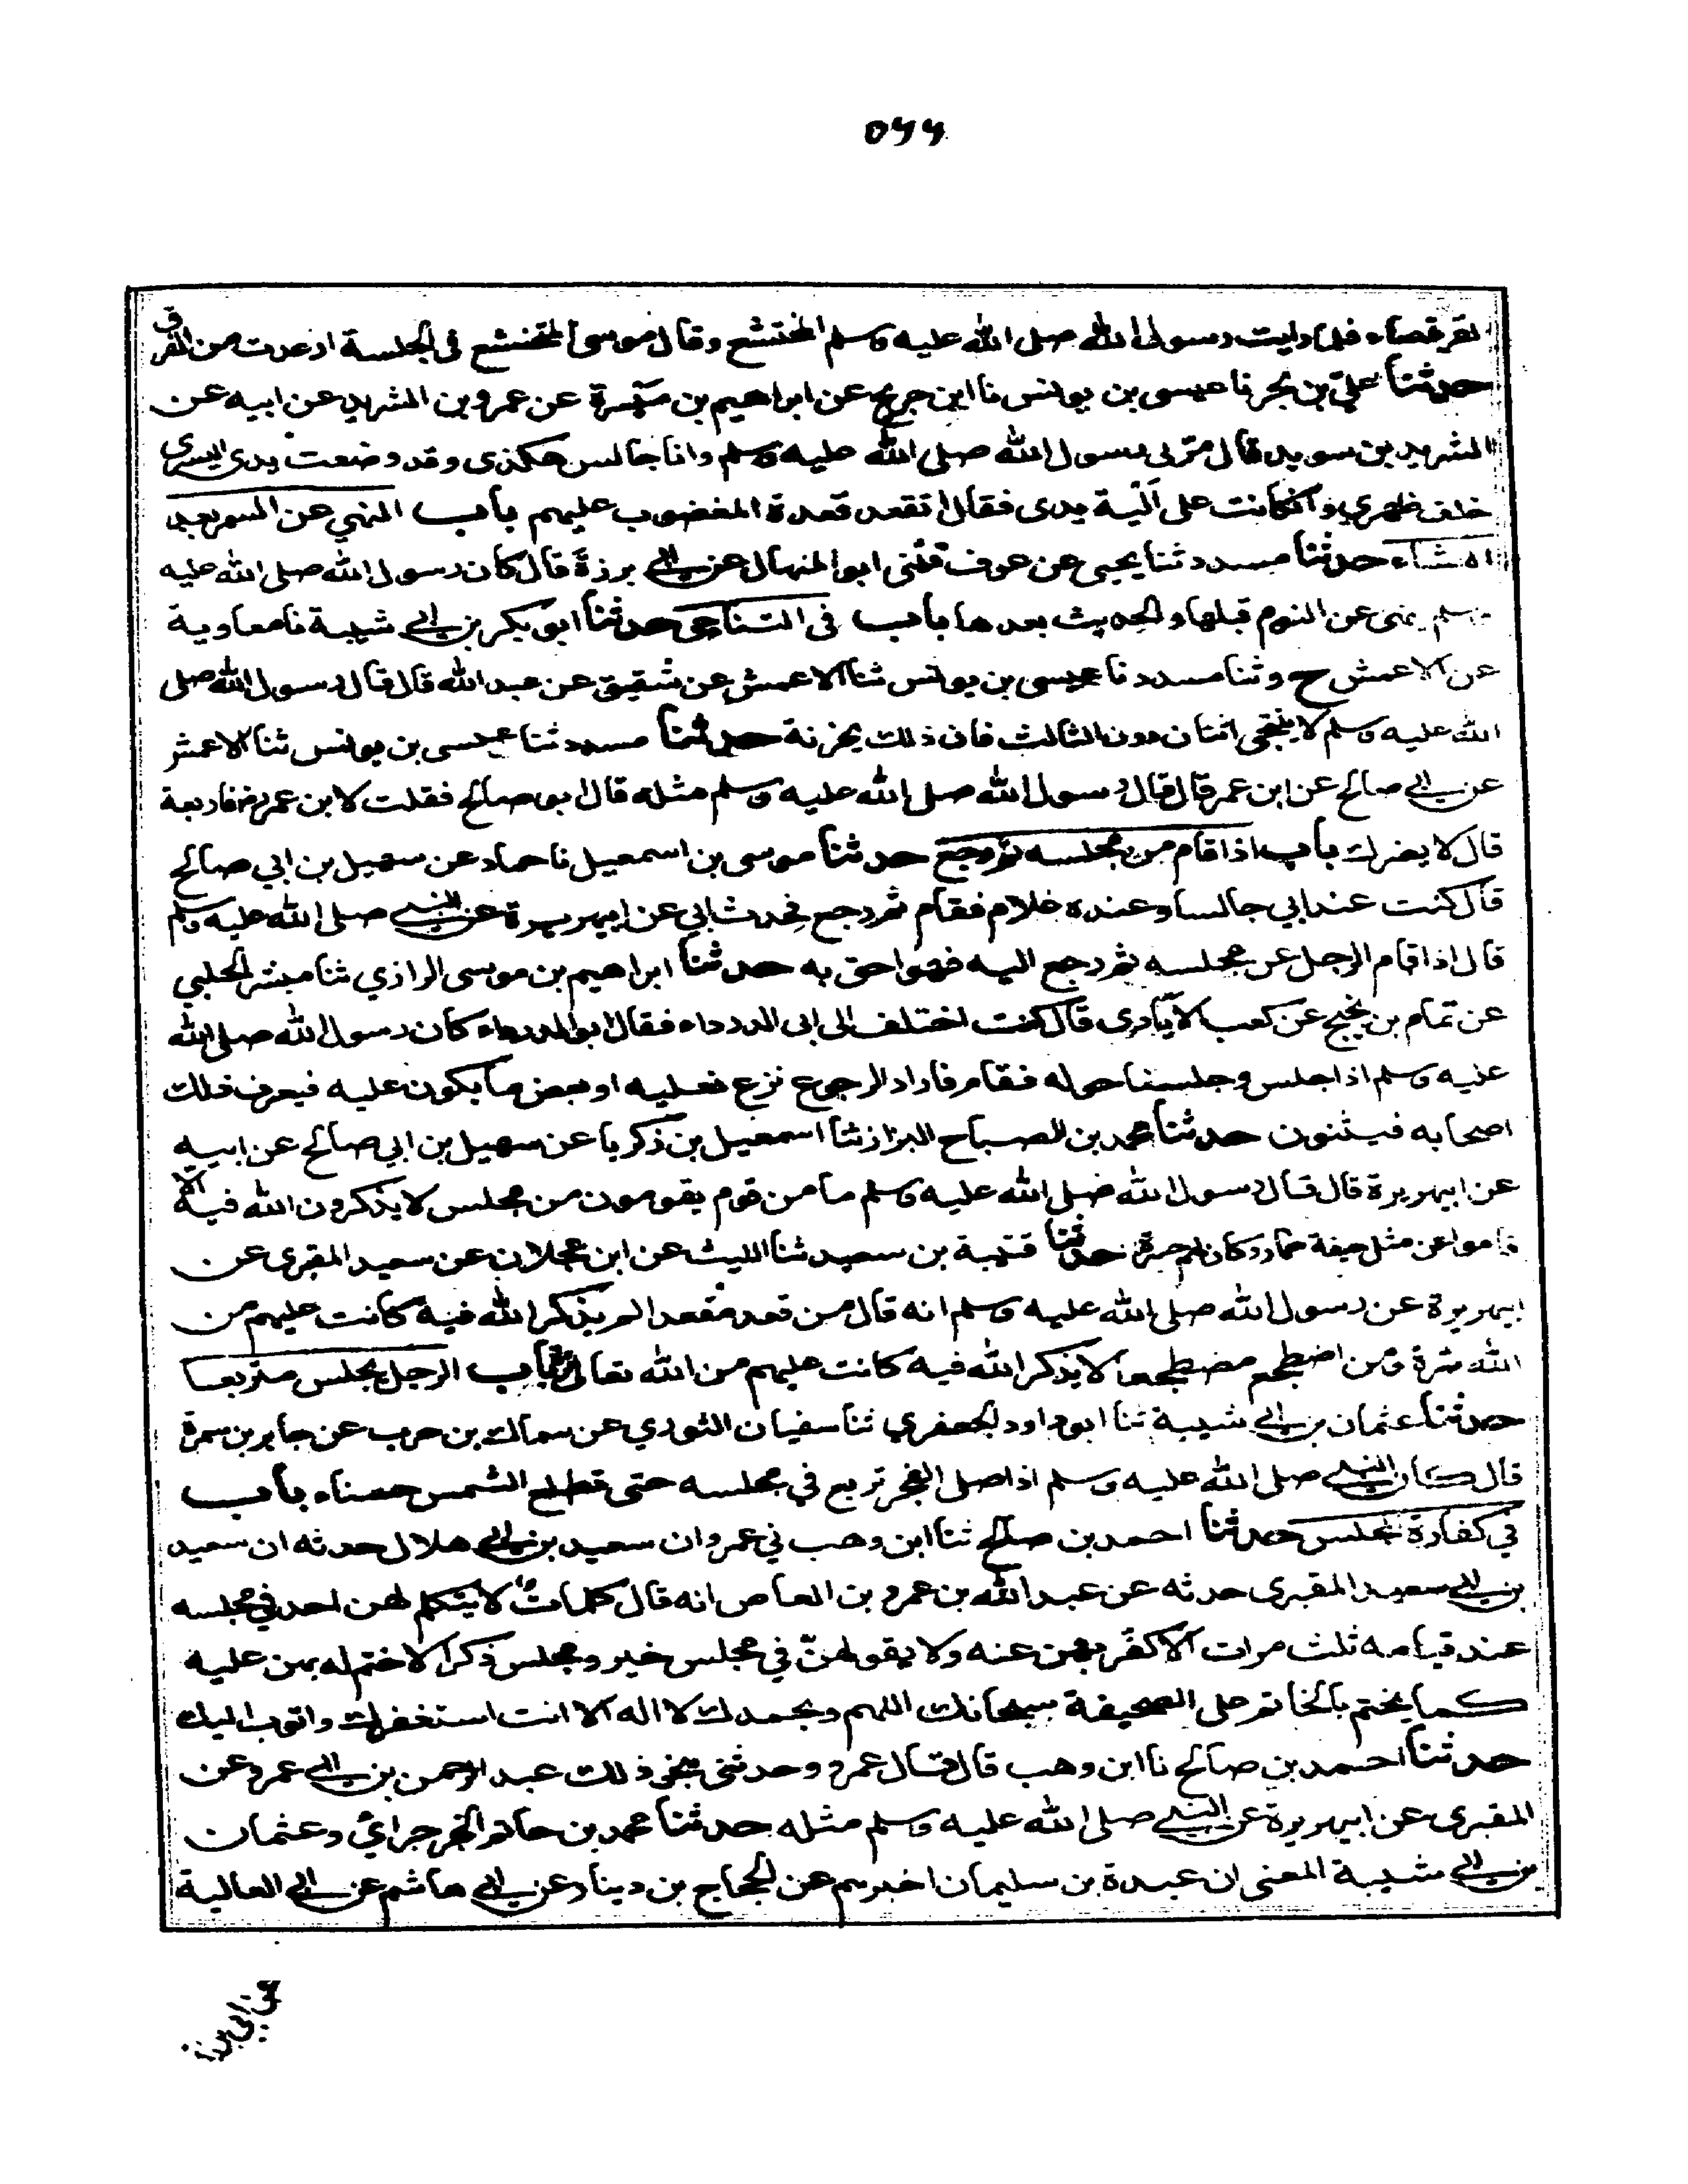 ٥٦٦
لقرفصاء فلما رايت رسول الله صلى الله عليه وسلم المختشع وقال موسى المتخشع فى الجلسة ارعدت من الفرق
حدثنا علي بن بحر نا عيسى بن يونس نا ابن جريج عن ابراهيم بن ميسرة عن عمرو بن الشريد عن ابيه عن
الشريد بن سويد قال مر بى رسول الله صلى الله عليه وسلم وانا جالس هكذى وقد وضعت يدى اليسرى
خلف ظهري واتكات على الية يدى فقال اتقعد قعدة المغضوب عليهم باب النهي عن السمر بعد
العشاء حدثنا مسدد ثنا يحيى عن عوف ثنى ابو المنهال عن ابي برزة قال كان رسول الله صلى الله عليه
وسلم ينهى عن النوم قبلها والحديث بعدها باب فى التناجى حدثنا ابو بكر بن ابي شيبة نا معاوية
عن الاعمش ح وثنا مسدد نا عيسى بن يونس ثنا الاعمش عن شقيق عن عبد الله قال قال رسول الله صلى
الله عليه وسلم لا ينتجى اثنان دون الثالث فان ذلك يحزنه حدثنا مسدد ثنا عيسى بن يونس ثنا الاعمش
عن ابي صالح عن ابن عمر قال قال رسول الله صلى الله عليه وسلم مثله قال ابو صالح فقلت لابن عمر فاربعة
قال لا يضرك باب اذا قام من مجلسه ثم رجع حدثنا موسى بن اسمعيل نا حماد عن سهيل بن ابي صالح
قال كنت عند ابي جالسا وعنده غلام فقام ثم رجع فحدث ابي عن ابيهريرة عن النبي صلى الله عليه وسلم
قال اذا قام الرجل عن مجلسه ثم رجع اليه فهو احق به حدثنا ابراهيم بن موسى الرازي ثنا مبشر الحلبي
عن تمام بن نجيح عن كعب الايادى قال كنت اختلف الى ابى الدرداء فقال ابو الدرداء كان رسول الله صلى الله
عليه وسلم اذا جلس وجلسنا حوله فقام فاراد الرجوع نزع نعليه او بعض ما يكون عليه فيعرف ذلك
اصحابه فيثبتون حدثنا محمد بن الصباح البزاز ثنا اسمعيل بن زكريا عن سهيل بن ابي صالح عن ابيه
عن ابيهريرة قال قال رسول الله صلى الله عليه وسلم ما من قوم يقومون من مجلس لا يذكرون الله فيه الا
قاموا عن مثل جيفة حمار وكان لهم حسرة حدثنا قتيبة بن سعيد ثنا الليث عن ابن عجلان عن سعيد المقبرى عن
ابيهريرة عن رسول الله صلى الله عليه وسلم انه قال من قعد مقعدا لم يذكر الله فيه كانت عليهم من
الله ترة ومن اضطجع مضطجعا لا يذكر الله فيه كانت عليهم من الله تعالى ترة باب الرجل يجلس متربعا
حدثنا عثمان بن ابي شيبة ثنا ابو داود الحفري ثنا سفيان الثوري عن سماك بن حرب عن جابر بن سمرة
قال كان النبي صلى الله عليه وسلم اذا صلى الفجر تربع في مجلسه حتى تطلع الشمس حسناء باب
في كفارة المجلس حدثنا احمد بن صالح ثنا ابن وهب ني عمرو ان سعيد بن ابي هلال حدثه ان سعيد
بن ابي سعيد المقبرى حدثه عن عبد الله بن عمرو بن العاص انه قال كلمات لا يتكلم بهن احد في مجلسه
عند قيامه ثلث مرات الا كفر بهن عنه ولا يقولهن في مجلس خير ومجلس ذكر الا ختم له بهن عليه
كما يختم بالخاتم على الصحيفة سبحانك اللهم وبحمدك لا اله الا انت استغفرك واتوب اليك
حدثنا احمد بن صالح نا ابن وهب قال قال عمرو وحدثنى بنحو ذلك عبد الرحمن بن ابي عمرو عن
المقبرى عن ابيهريرة عن النبي صلى الله عليه وسلم مثله حدثنا محمد بن حاتم الجرجرائي وعثمان
بن ابي شيبة المعنى ان عبدة بن سليمان اخبرهم عن الحجاج بن دينار عن ابي هاشم عن ابي العالية
عن ابي برزة